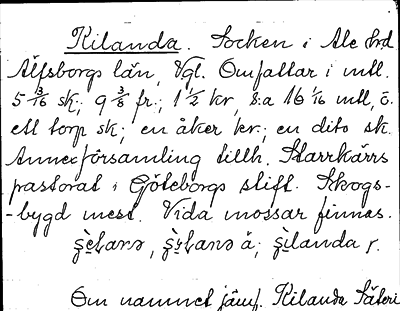 Kilanda. Socken i Ale hrd
Älfsborgs län, Vgl. Omfattar i mtl.
5 3/16 sk; 9 3/8 fr; 1 1/2 kr, s:a 16 1/16 mtl, o.
ett torp sk; en åker kr; en dito sk.
Annexförsamling tillh. Starrkärrs
pastorat i Göteborgs stift. Skogs-
-bygd mest. Vida mossar finnas.
Om namnet jämf. Kilanda Säteri